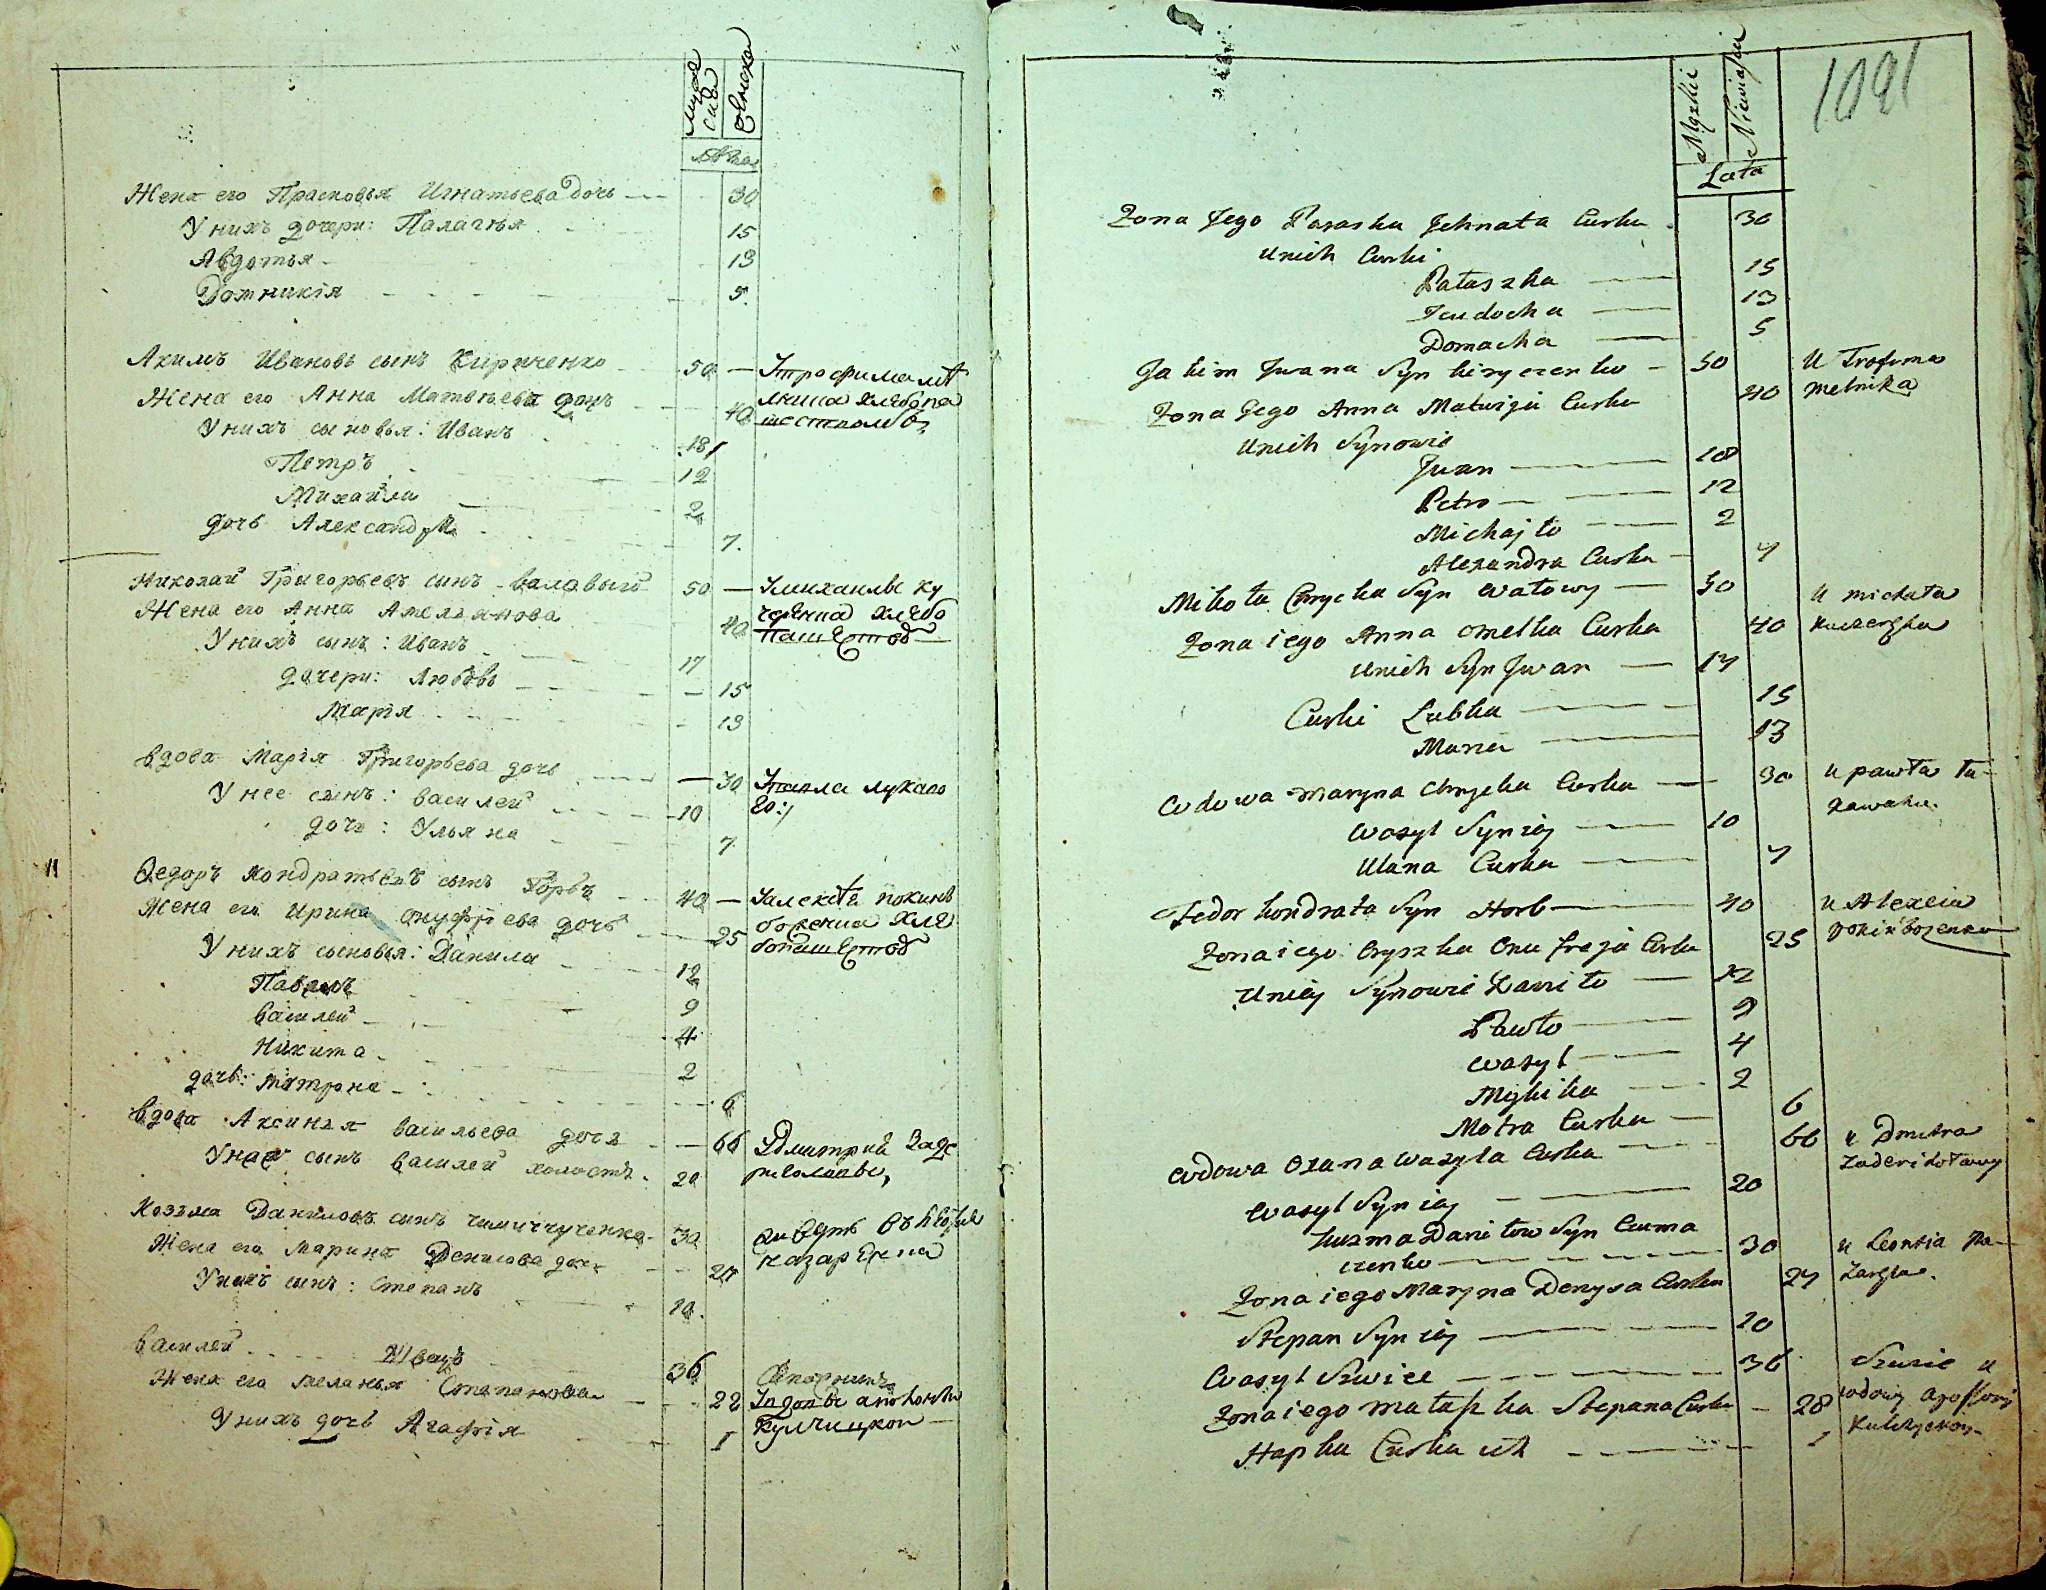 Мужеска
Женска
Лѣта
Жена его Прасковья Игнатьева дочь — 30
У нихъ дочери: Палагѣя 15
Авдотья 13
Домникія 5
Акимъ Ивановъ сынъ Кириченко 50 — У трофима мѣ
Жена его Анна Матвѣева дочь 40
У нихъ сыновья: Иванъ 18
Петръ 12
Михайла 2
дочь Александра 7
Николай Григорьевъ сынъ валовый 50 — У михаилы ку
Жена его Анна Амельянова 40 черенка хлебо
У нихъ сынъ: Иванъ 17 пашество
дочери: Любовь 15
Марія 13
Вдова Марія Григорьева дочь — 30 У павла лукаво
У нее сынъ: василей 10
дочь: Ульяна 7
Ѳедоръ Кондратьевъ сынъ Горбъ 40 — У алексѣя покинь
Жена его Ирина Онуфріева дочь 25 боженка хле
У нихъ сыновья: Данила 12
Павелъ 9
Василей 4
Никита 2
дочь: Матрона 6
Вдова Аксинья васильева дочь — 66 У Дмитрий Заде
У нее сынъ василей холостъ 20
Козьма Даниловъ сынъ 30
Жена его Марина Денисова дочь 27
У нихъ сынъ: Степанъ 10
Василей Швецъ 36
Жена его Меланья Степанова 22
У нихъ дочь Агафія 1 Кулчицкои
1091
Męzkie
Niewiastki
Lata
Zona Jego Paraska Jehnata Curka 30
unich Curki
Pałaszka 15
Jeudocha 13
Domacha 5
Jakim Jwana Syn kiryczenko 50 U Trofima
Zona Jego Anna Matwija Curka 40 melnika
unich Synowie
Jwan 18
Petro 12
Michajło 2
Alexandra Curka 7
Mikoła Chrycka Syn Wałowy 50 u michała
Zona iego Anna omelka Curka 40 Kuczerenka
unich Syn Jwan 17
Curki Lubka 15
Maria 13
Wdowa Maryna Chrycka Curka 30 u pawła łu-
Wasyl Syn iey 10 kawaho.
Ulana Curka 7
Fedor kondrata Syn Horb 40 u Alexeia
Zona iego Oryszka Onufreja Curka 25
Unich Synowie Daniło 12
Pawło 9
Wasyl 4
Mykita 2
Motra Curka 6
Wdowa Oxana Wasyla Curka 66 u Dmitra
Wasyl Syn iey 20
kuzma Daniłow Syn Cuma
czenko 30 u Leontia Na-
Zona iego Maryna Denysa Curka 27 zarenka.
Stepan Syn iey 10
Wasyl Szwiec 36
Zona iego Małaszka Stepana Curka 28
Hapka Curka ich 1